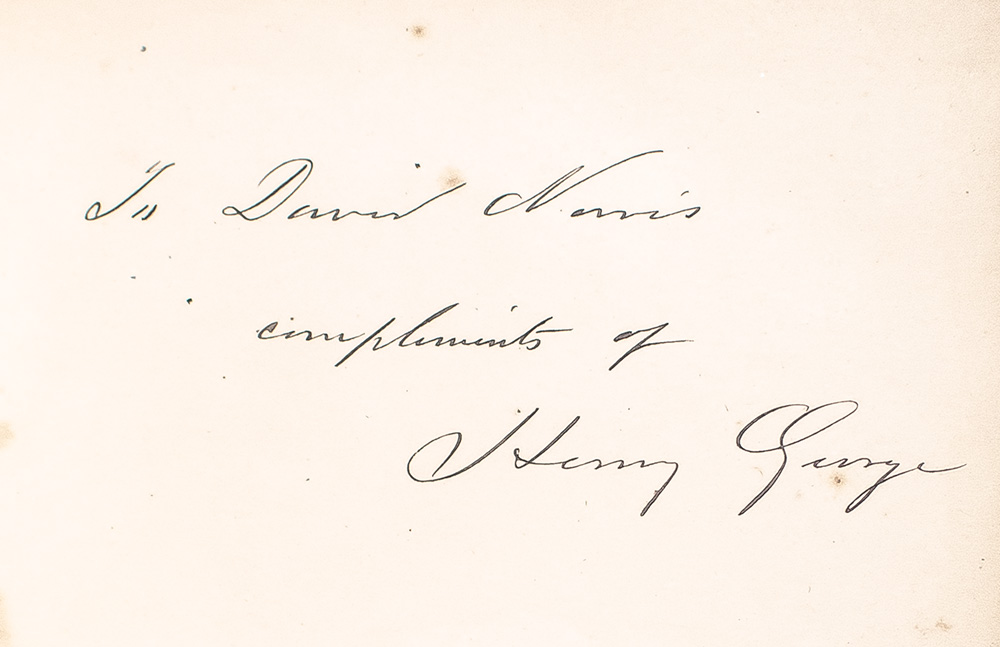 To David Norris
compliments of
Henry George